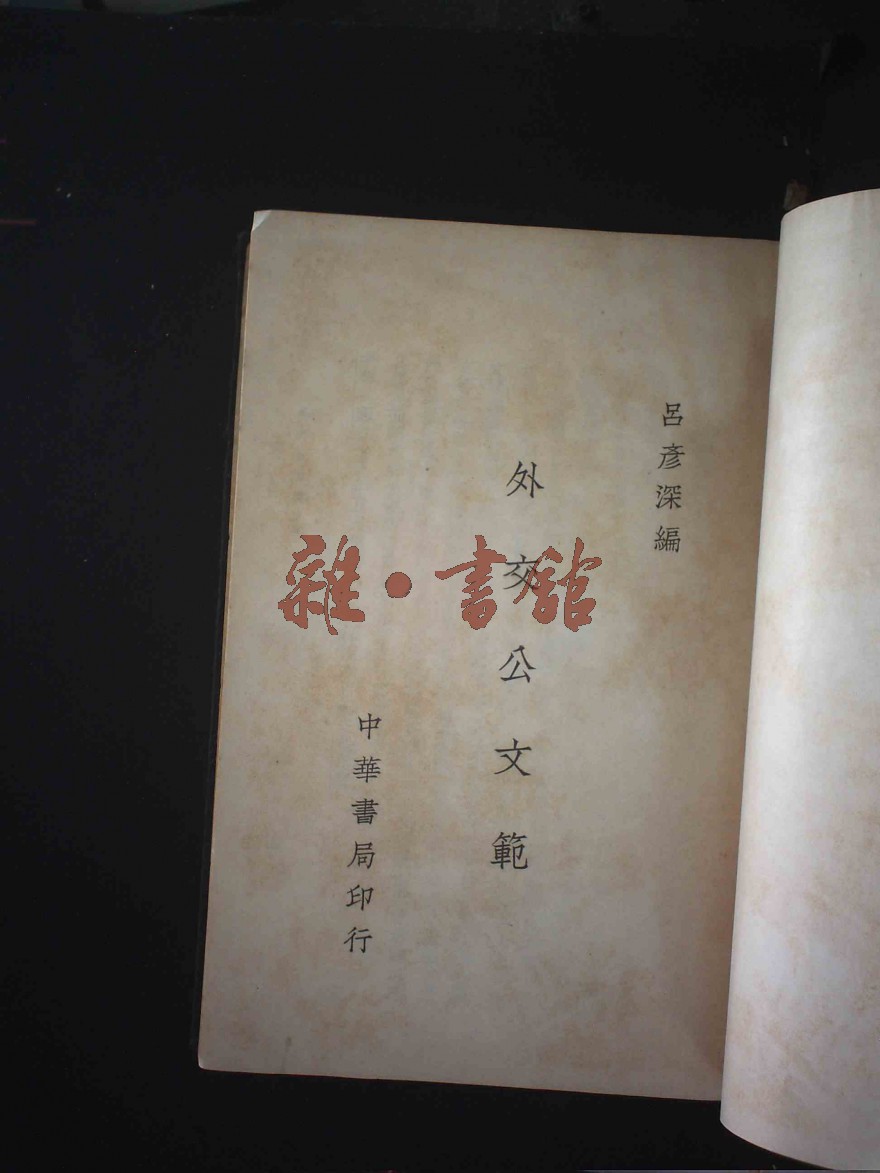 呂彥深編
外交公文範
中華書局印行
雜·書館